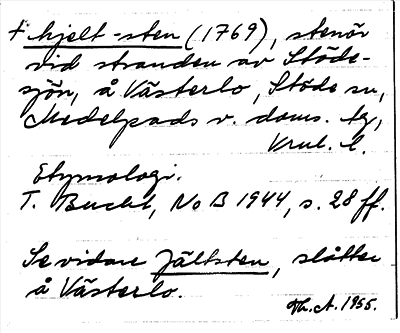 † hjelt-sten (1769), stenör
vid stranden av Stöde-
sjön, å Västerlo, Stöde sn,
Medelpads v. doms. tg,
Vnrl. l.
Etymologi.
T. Bucht, No B 1944, s. 28 ff.
Se vidare Jältsten, slåtter
å Västerlo.
Th. A. 1955.